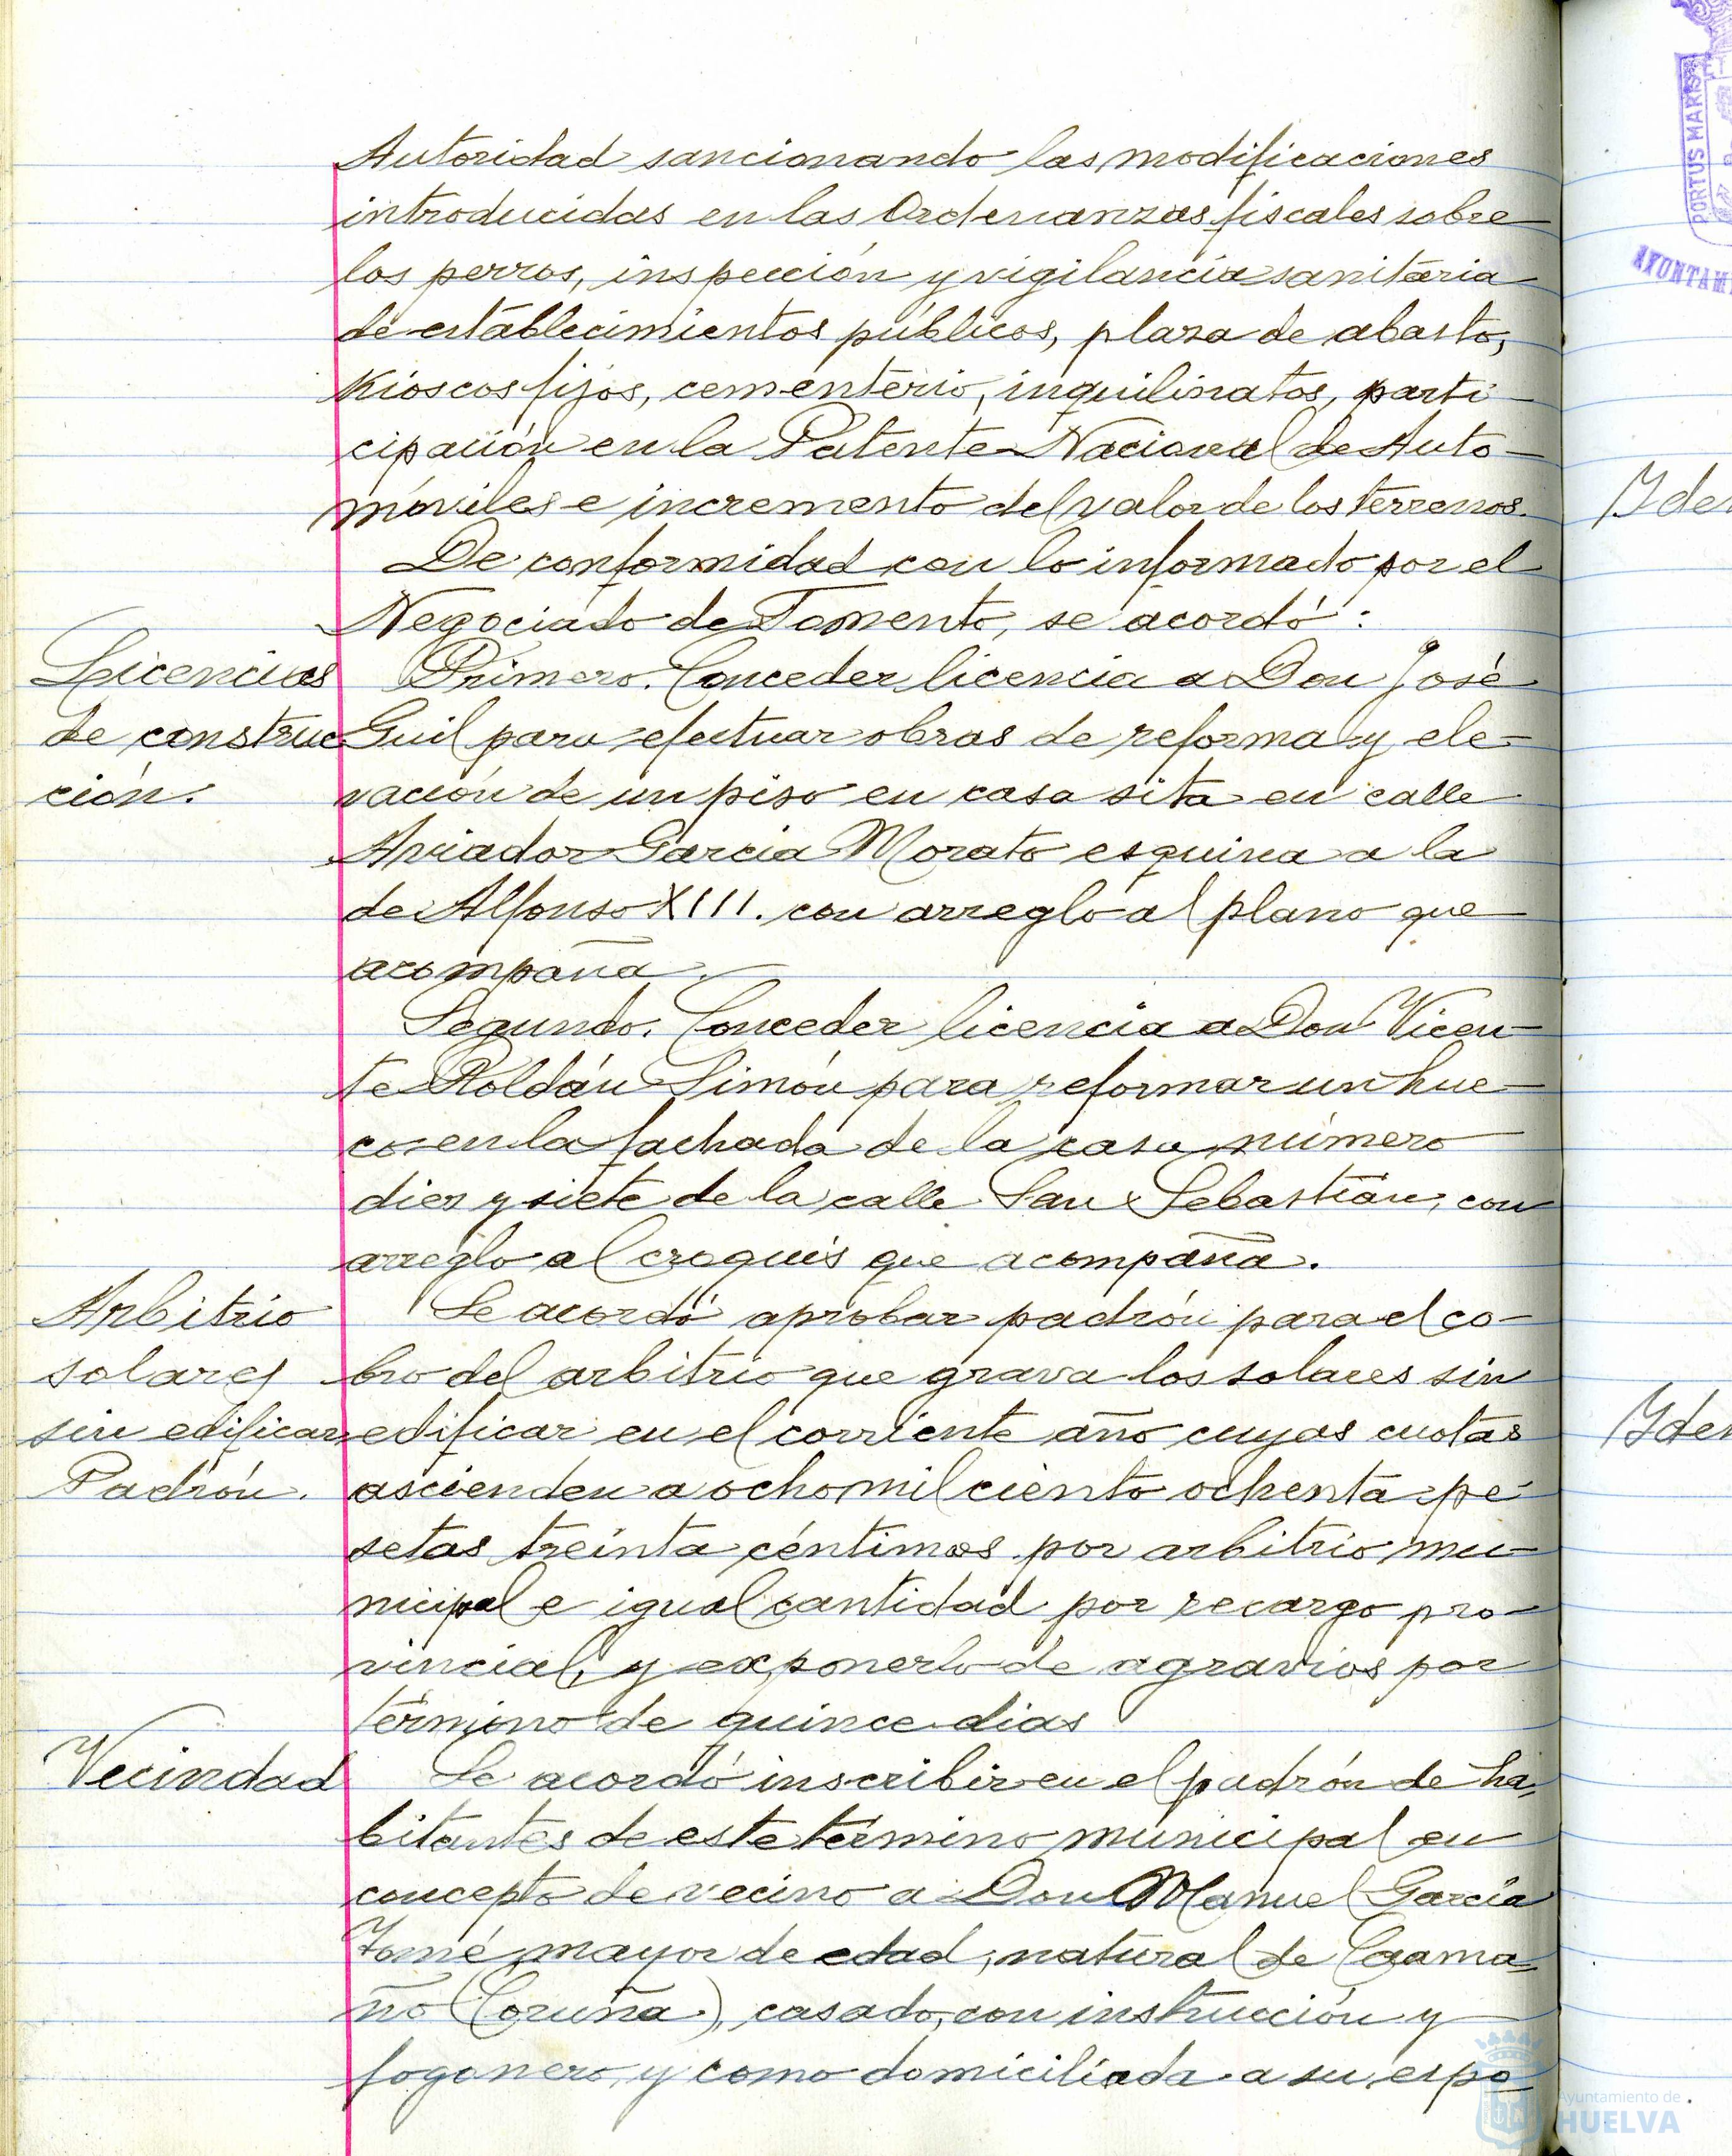 Autoridad sancionando las modificaciones
introducidas en las Ordenanzas fiscales sobre
los perros, inspección y vigilancia sanitaria
de establecimientos públicos, plaza de abasto,
Kioscos fijos, cementerio, inquilinatos, parti-
cipación en la Patente Nacional de Auto-
móviles e incremento del valor de los terrenos.
De conformidad con lo informado por el
Negociado de Fomento, se acordó:
Licencias
de construc
ción.
Primero. Conceder licencia a Don José
Guil para efectuar obras de reforma y ele-
vación de un piso en casa sita en calle
Aviador García Morato esquina a la
de Alfonso XIII. con arreglo al plano que
acompaña.
Segundo. Conceder licencia a Don Vicen-
te Roldán Simón para reformar un hue-
co en la fachada de la casa número
diez y siete de la calle San Sebastián, con
arreglo al croquis que acompaña.
Arbitrio
solares
sin edificar
Padrón.
Se acordó aprobar padrón para el co-
bro del arbitrio que grava los solares sin
edificar en el corriente año cuyas cuotas
ascienden a ocho mil ciento ochenta pe-
setas treinta céntimos por arbitrio mu-
nicipal e igual cantidad por recargo pro-
vincial, y exponerlo de agravios por
término de quince dias
Vecindad
Se acordó inscribir en el padrón de ha-
bitantes de este término municipal en
concepto de vecino a Don Manuel García
Tomé, mayor de edad, natural de Caama-
ño (Coruña), casado, con instrucción y
fogonero, y como domiciliada a su espo-
Yden
Yden
PORTUS MARIS ET
AYUNTAM
Ayuntamiento de
HUELVA